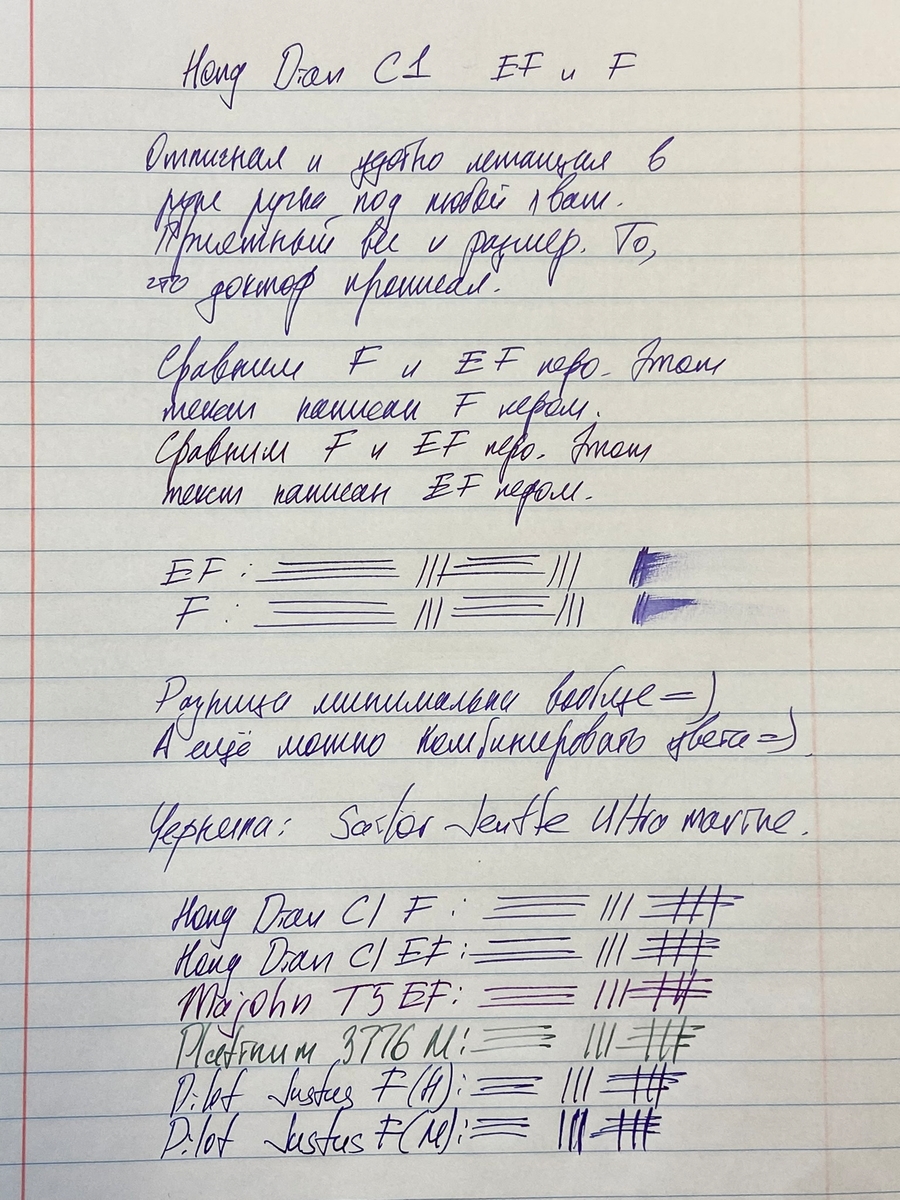 Hong Dian C1 EF и F
Отличная и удобно лежащая в
руке ручка под любой хват.
Приятный вес и размер. То,
что доктор прописал.
Сравним F и EF перо. Этот
текст написан F пером.
Сравним F и EF перо. Этот
текст написан EF пером.
EF:
F :
Разница минимальна вообще =)
А ещё можно комбинировать цвета =)
Чернила: Sailor Jentle Ultra marine.
Hong Dian C1 F :
Hong Dian C1 EF:
Majohn T5 EF:
Platinum 3776 M:
Pilot Justus F(H):
Pilot Justus F(M):